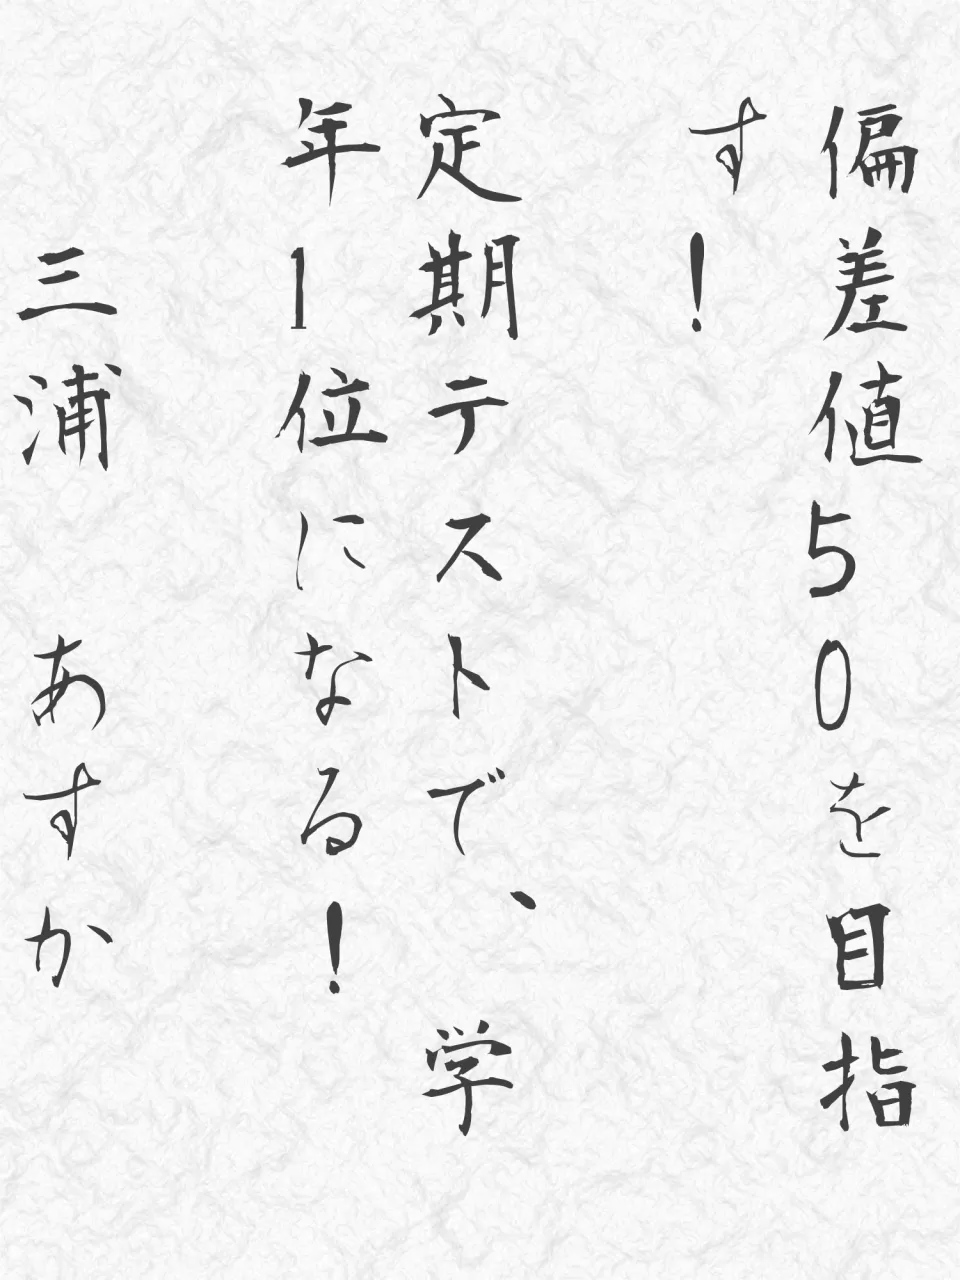 偏差値50を目指
す!
定期テストで、学
年1位になる!
三浦 あすか